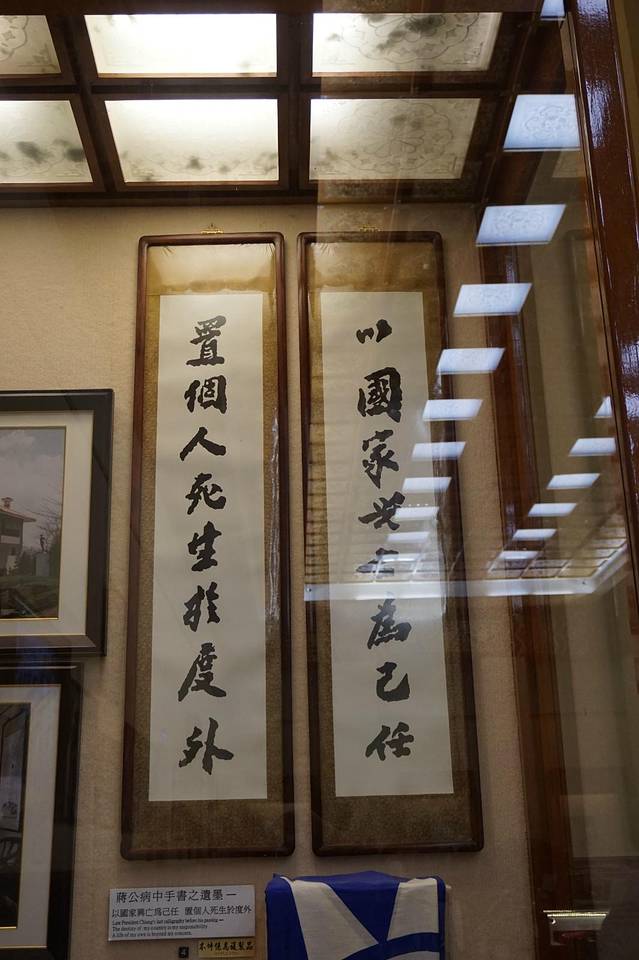 以國家興亡為己任
置個人死生於度外
蔣公病中手書之遺墨一
以國家興亡為己任 置個人死生於度外
Late President Chiang's last calligraphy before his passing —
The destiny of my country is my responsibility
A life of my own is beyond my concern.
本件係為複製品